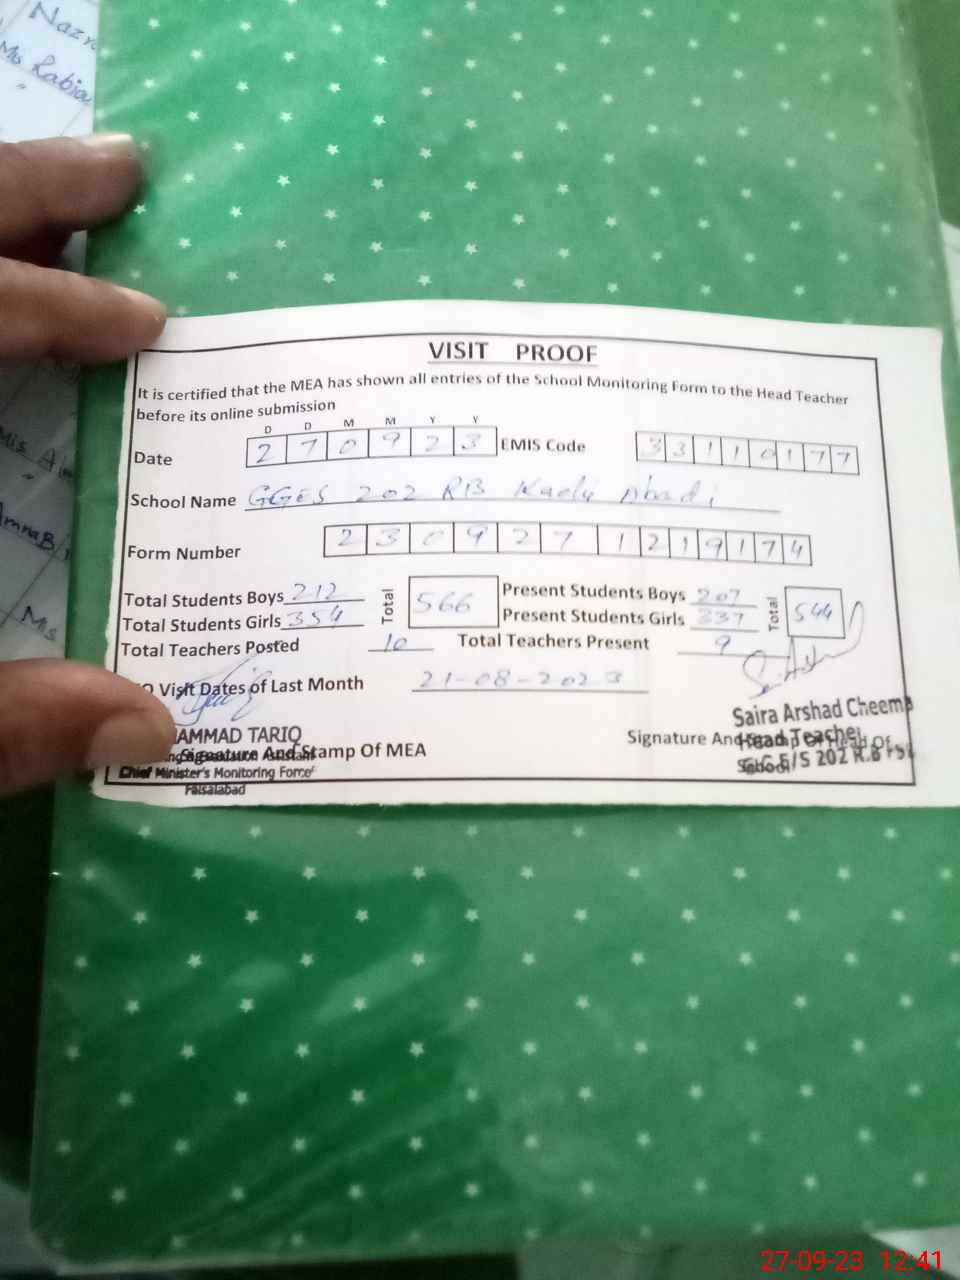 Nazr
Ms Rabia
"
Mis Am
"
AmnaB
Mis
VISIT PROOF
It is certified that the MEA has shown all entries of the School Monitoring Form to the Head Teacher
before its online submission
D D M M Y Y
Date 2 7 0 9 2 3 EMIS Code 3 3 1 1 0 1 7 7
School Name GGES 202 RB Kaely Abadi
Form Number 2 3 0 9 2 7 1 2 1 9 1 7 4
Total Students Boys 212 Total 566 Present Students Boys 207 Total 544
Total Students Girls 354 Present Students Girls 337
Total Teachers Posted 10 Total Teachers Present 9
O Visit Dates of Last Month 21-08-2023
AMMAD TARIQ
Signature And Stamp Of MEA
Chief Minister's Monitoring Force
Faisalabad
Saira Arshad Cheema
Signature And
Head Teacher
G.G.E/S 202 R.B FSD
27-09-23 12:41